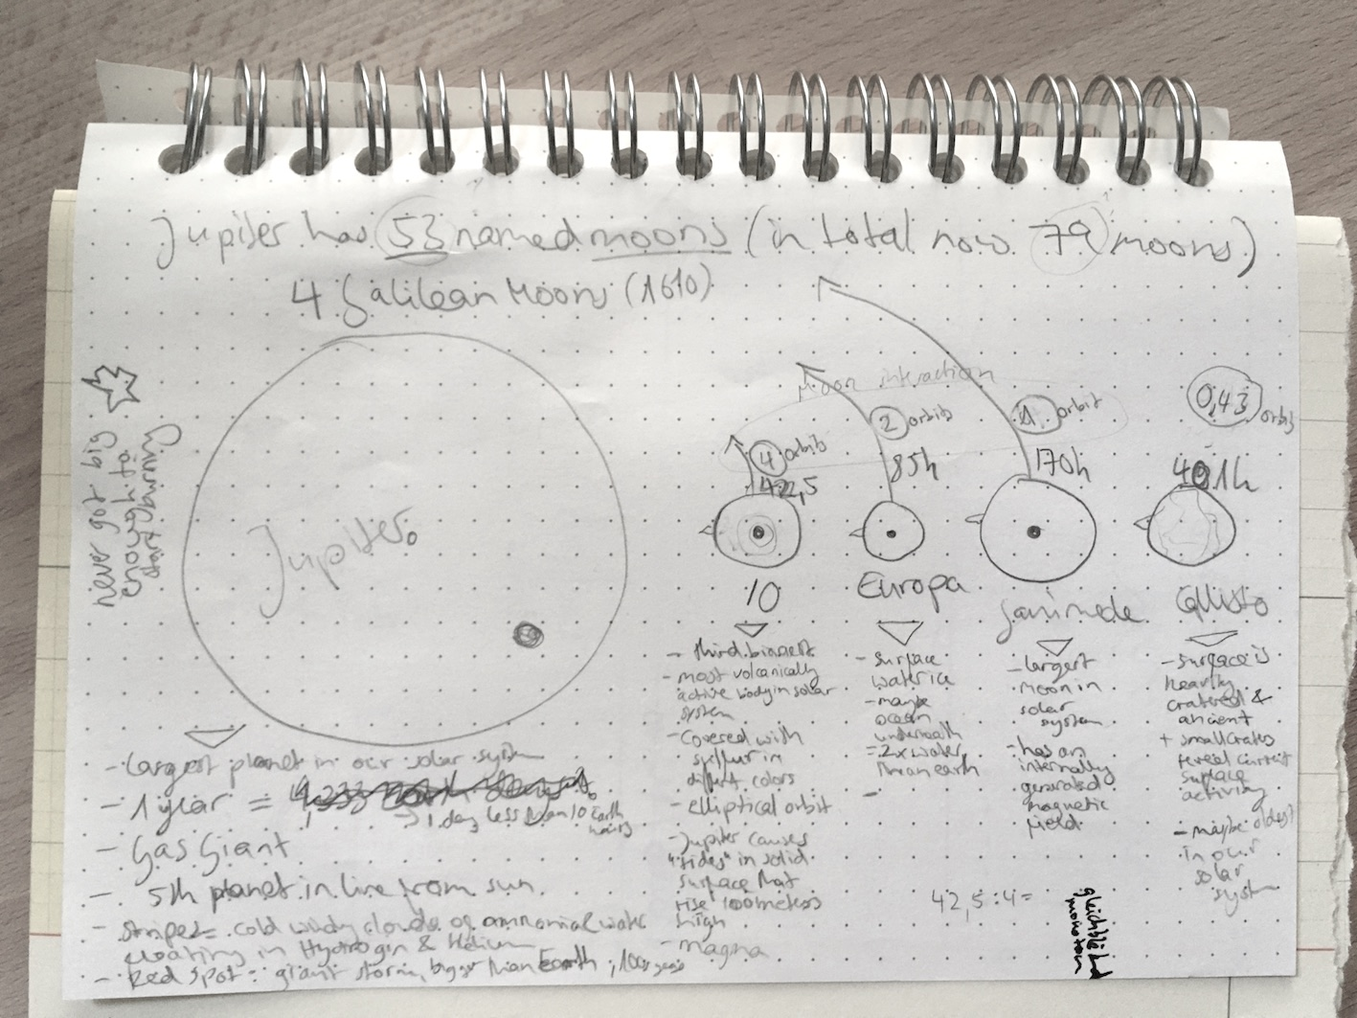 Jupiter has 53 named moons (in total now 79 moons)
4 Galilean Moons (1610)
never got big
enough to
start burning
Jupiter
moon interaction
4 orbits
42,5
2 orbits
85h
1 orbit
170h
0,43
orbits
401h
IO
Europa
Ganimede
Callisto
- largest planet in our solar system
- 1 year =
1 day less than 10 Earth
hours
- Gas Giant
- 5th planet in line from sun
- Stripes = cold windy clouds of ammonia & water
floating in Hydrogen & Helium
- Red Spot = giant storm, bigger than Earth, 100 years
- third biggest
- most volcanically
active body in solar
system
- covered with
sulfur in
diffrent colors
- elliptical orbit
- Jupiter causes
"tides" in solid
surface that
rise 100 meters
high
- magma
- surface
water ice
- maybe
ocean
underneath
= 2x water
than earth
-
- largest
moon in
solar
system
- has an
internally
generated
magnetic
field
- surface is
heavily
cratered &
ancient
+ small crates
reveal current
surface
activity
- maybe oldest
in our
solar
system
42,5 : 4 =
monoton